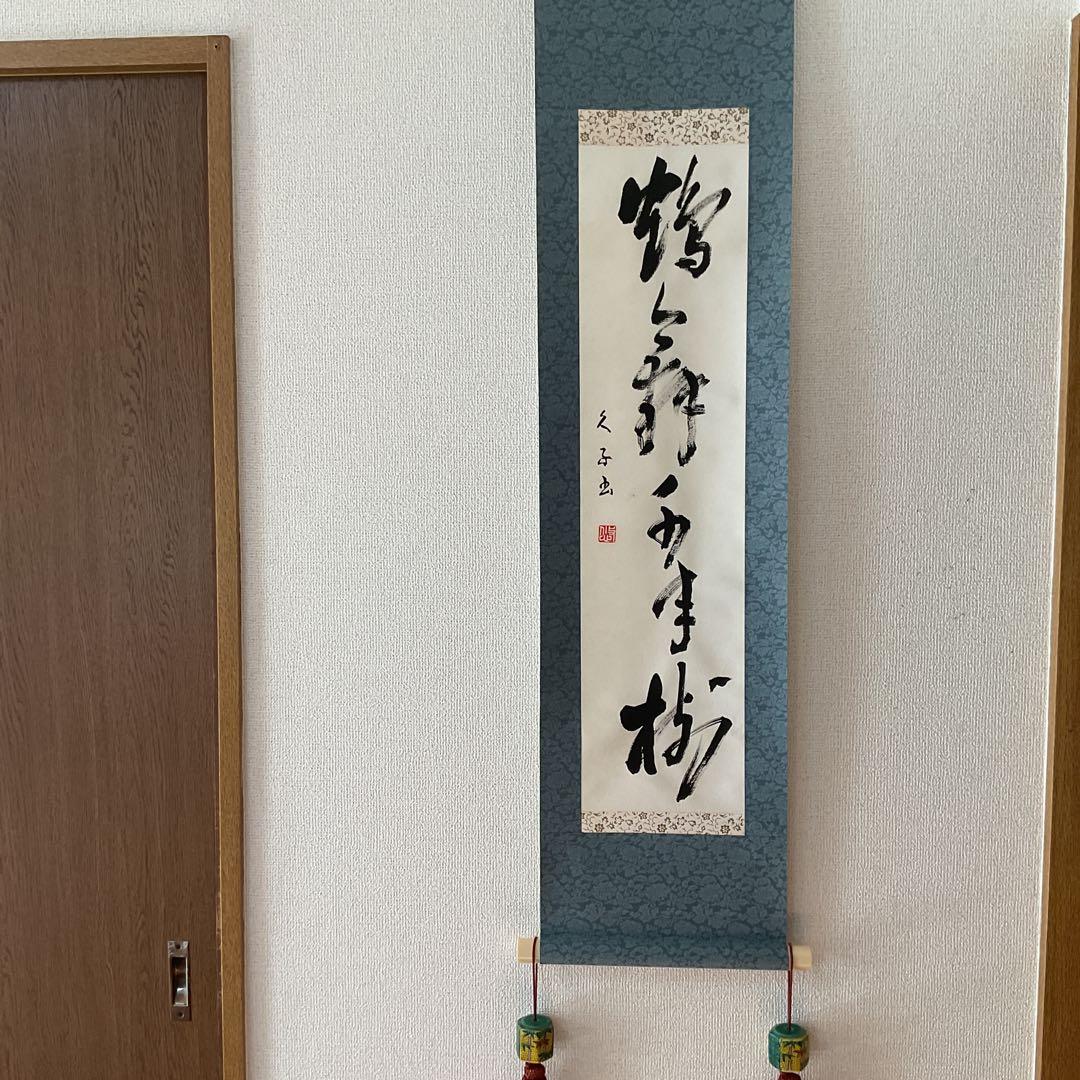 鶴舞千年樹
久子書